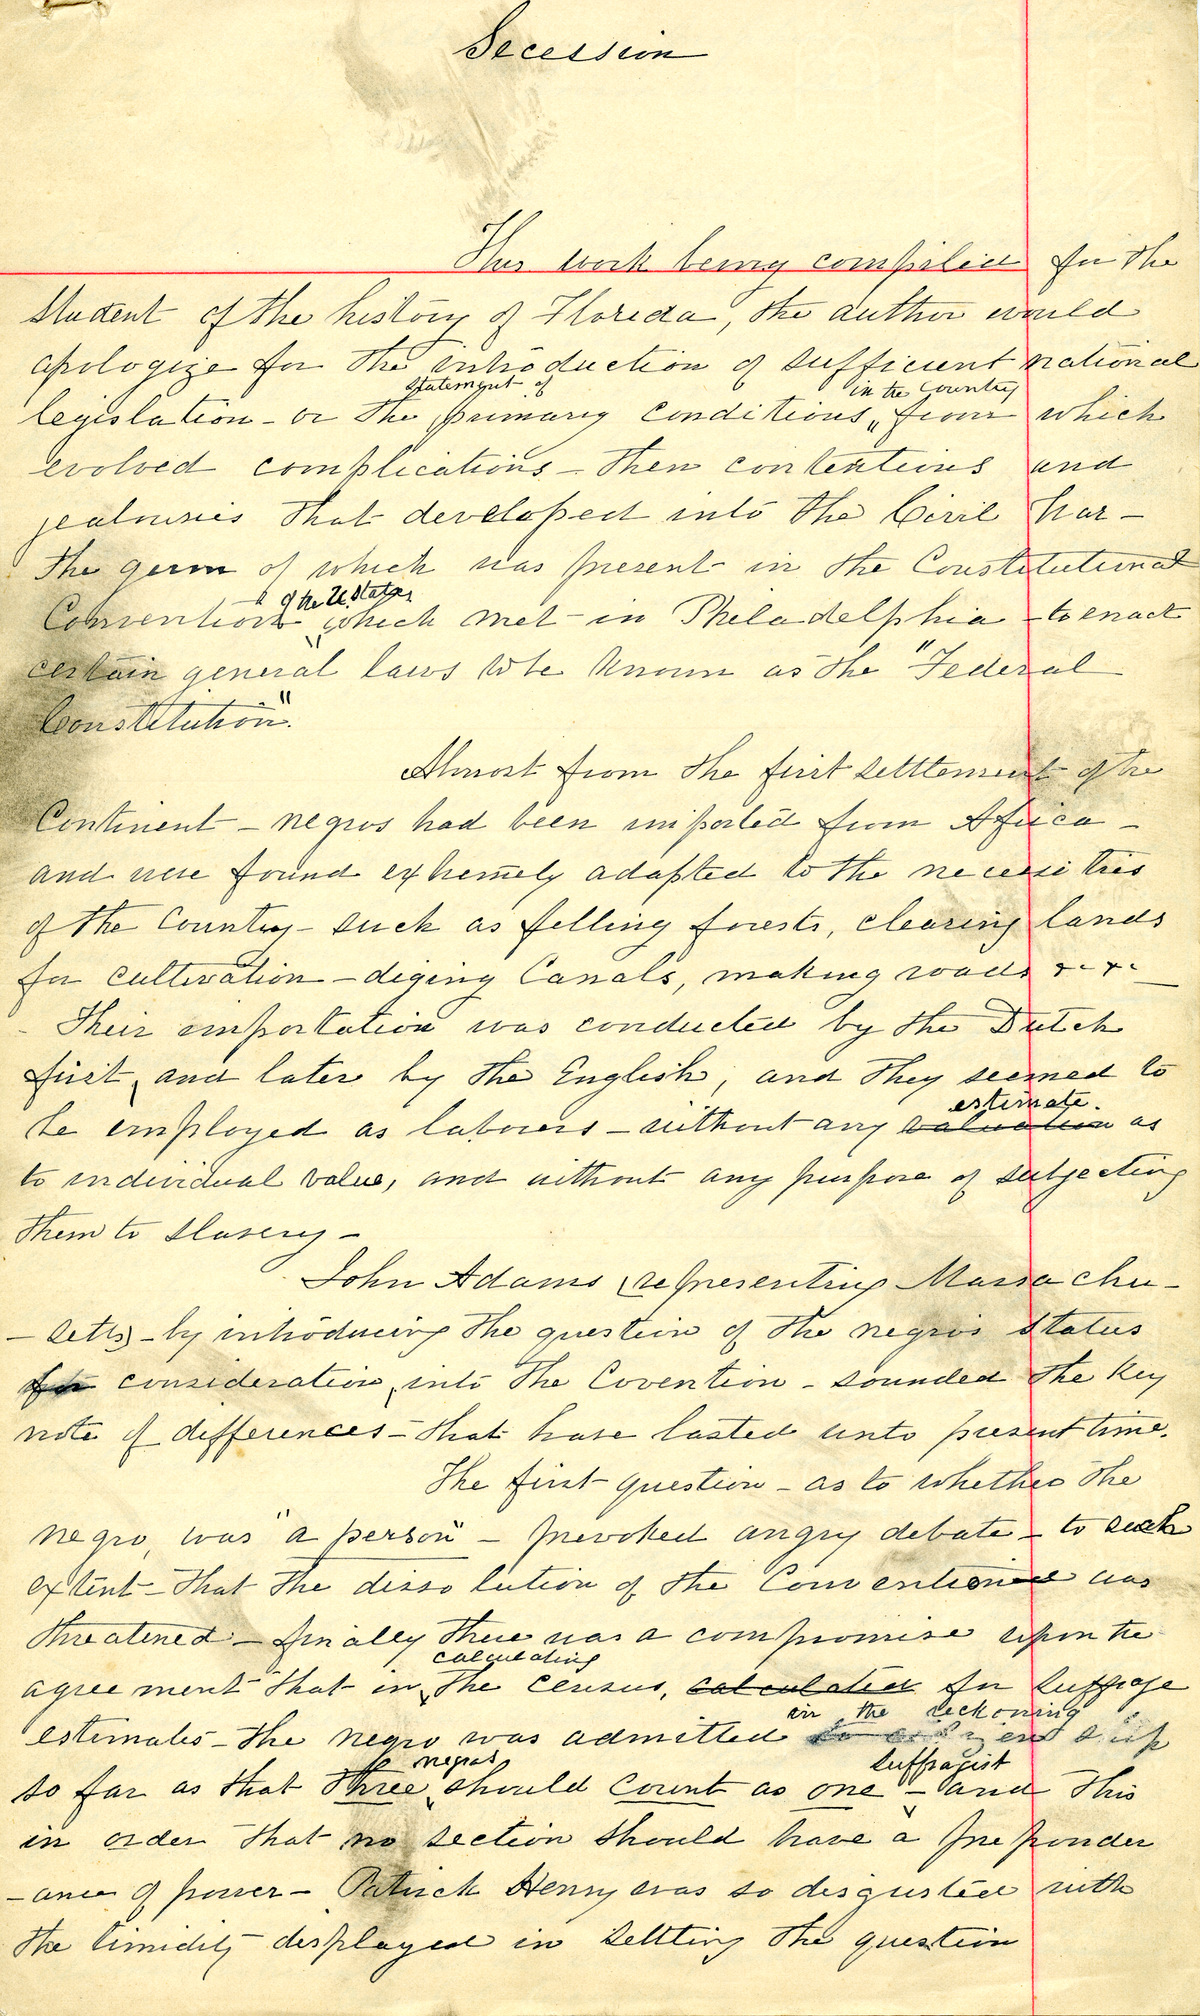 Secession
This work being compiled for the
student of the history of Florida, the author would
apologize for the introduction of sufficient national
statement of in the country
legislation - or the primary conditions, from which
evolved complications - then contentions and
jealousies that developed into the Civil War -
the germ of which was present in the Constitutional
of the U. States
Convention which met in Philadelphia to enact
certain general laws to be known as the "Federal
Constitution".
Almost from the first settlement of the
Continent - negros had been imported from Africa -
and were found extremely adapted to the necessities
of the Country - such as felling forests, clearing lands
for cultivation - diging Canals, making roads &c &c -
Their importation was conducted by the Dutch
first, and later by the English, and they seemed to
estimate.
be employed as laborers - without any valuation as
to individual value, and without any purpose of subjecting
them to slavery -
John Adams, representing Massachu-
-setts - by introducing the question of the negros status
for consideration, into the Covention - sounded the key
note of differences - that have lasted unto present time.
The first question - as to whether the
negro, was "a person" - provoked angry debate - to such
extent - that the dissolution of the Convention was
threatened - finally there was a compromise upon the
calculating
agreement that in the census, calculated for suffrage
in the reckoning
estimates - the negro was admitted to
negros suffragist
so far as that three should count as one - and this
in order that no section should have a preponder
-ance of power - Patrick Henry was so disgusted with
the timidity displayed in settling the question